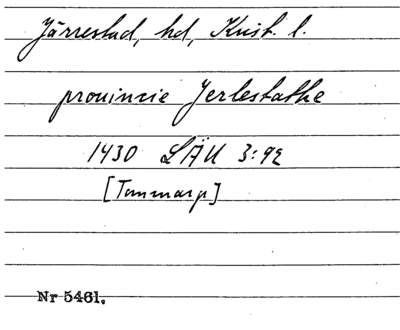 Järrestad, hd, Krist. l.
prouinzie Jerlestathe
1430 LÄU 3:92
[Tommarp]
Nr 5461.